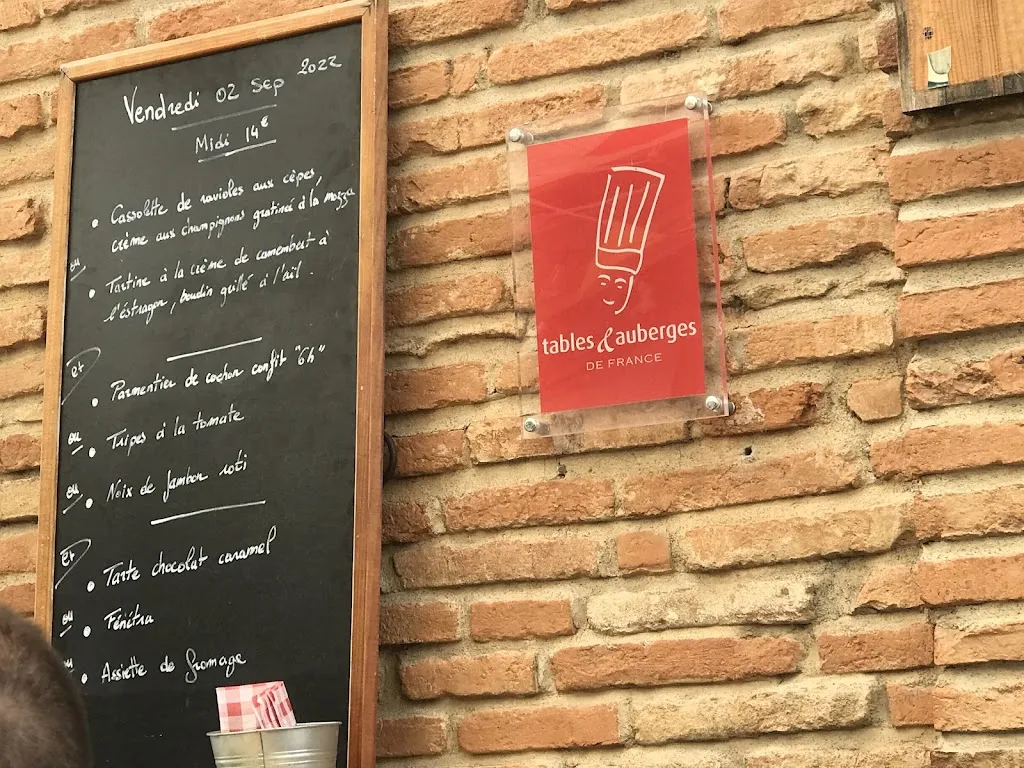 Vendredi 02 Sep 2022
Midi 14€
• Cassolette de ravioles aux cèpes,
crème aux champignons gratinée à la mozza
ou
• Tartine à la crème de camembert à
l'éstragon, boudin grillé à l'ail.
et
• Parmentier de cochon confit "6h"
ou
• Tripes à la tomate
ou
• Noix de Jambon roti
et
• Tarte chocolat caramel
ou
• Fénétra
ou
• Assiette de fromage
tables & auberges
DE FRANCE